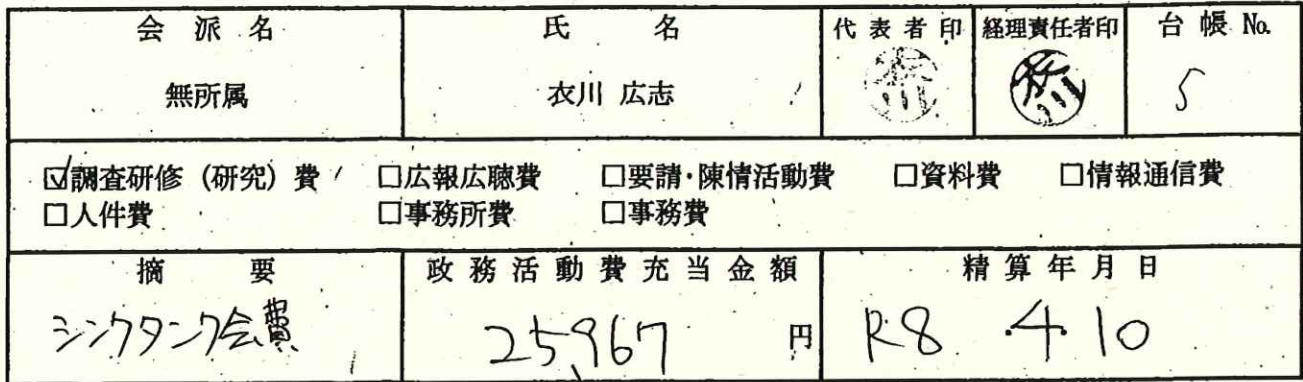 会派名 氏名 代表者印 経理責任者印 台帳No.
無所属 衣川 広志 5
☑調査研修(研究)費 □広報広聴費 □要請・陳情活動費 □資料費 □情報通信費
□人件費 □事務所費 □事務費
摘要 政務活動費充当金額 精算年月日
シンクタンク会費 25,967 円 R8.4.10